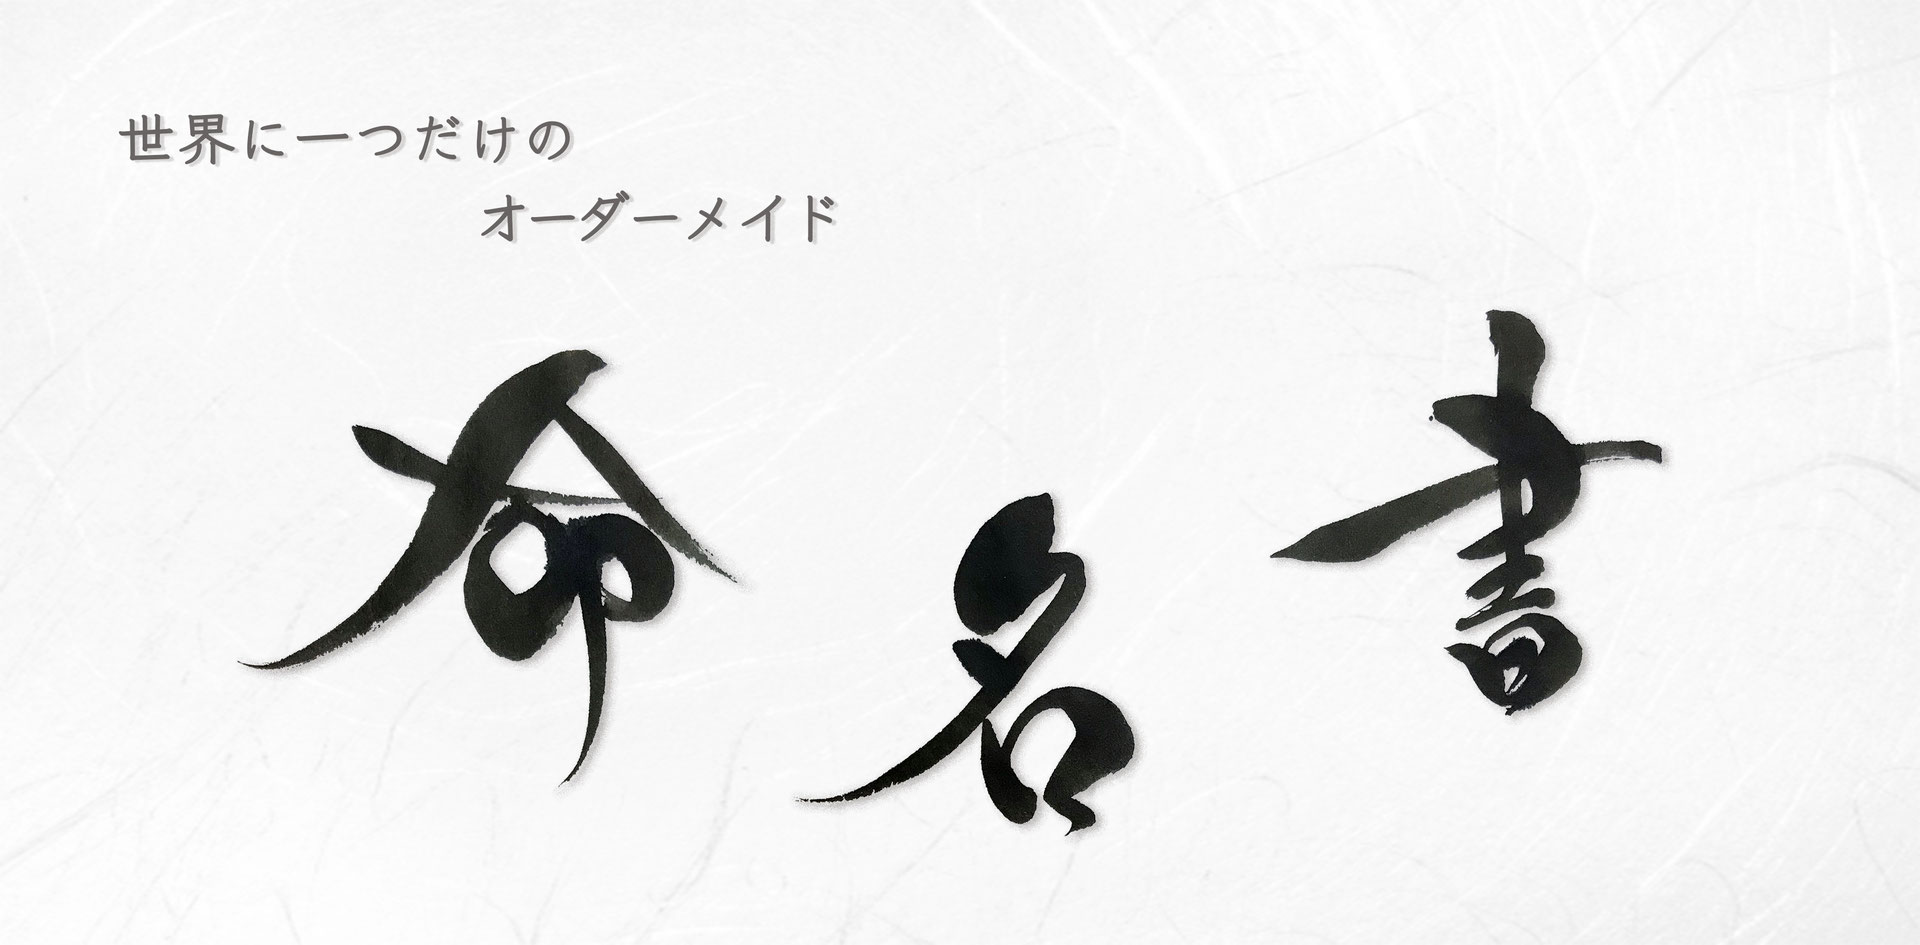 世界に一つだけの
オーダーメイド
命名書